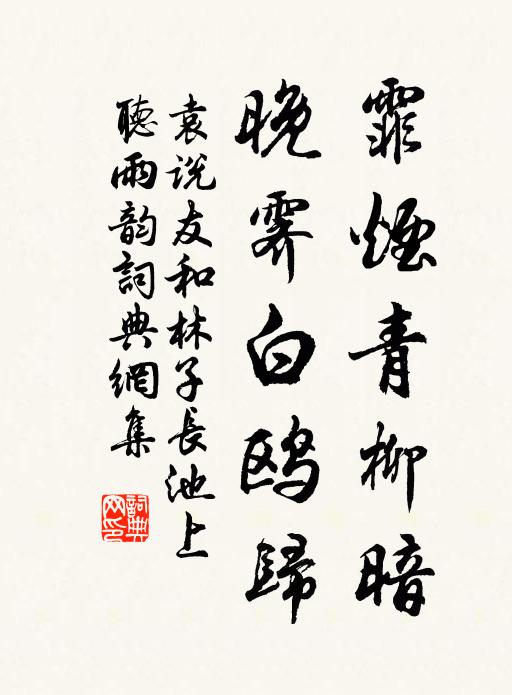 霏煙青柳暗
晚霽白鷗歸
袁説友和林子長池上
聽雨韵詞典網集
詞典网印